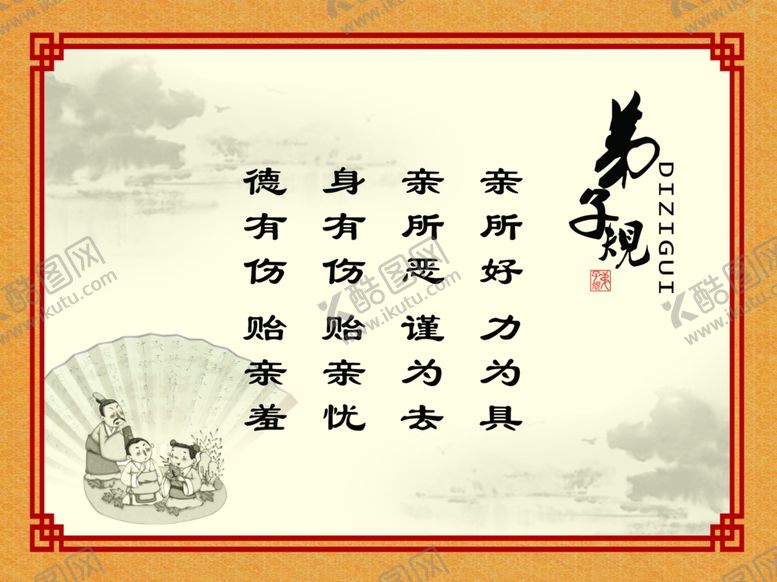 弟子规
DIZIGUI
亲所好 力为具
亲所恶 谨为去
身有伤 贻亲忧
德有伤 贻亲羞
酷图网
www.ikutu.com